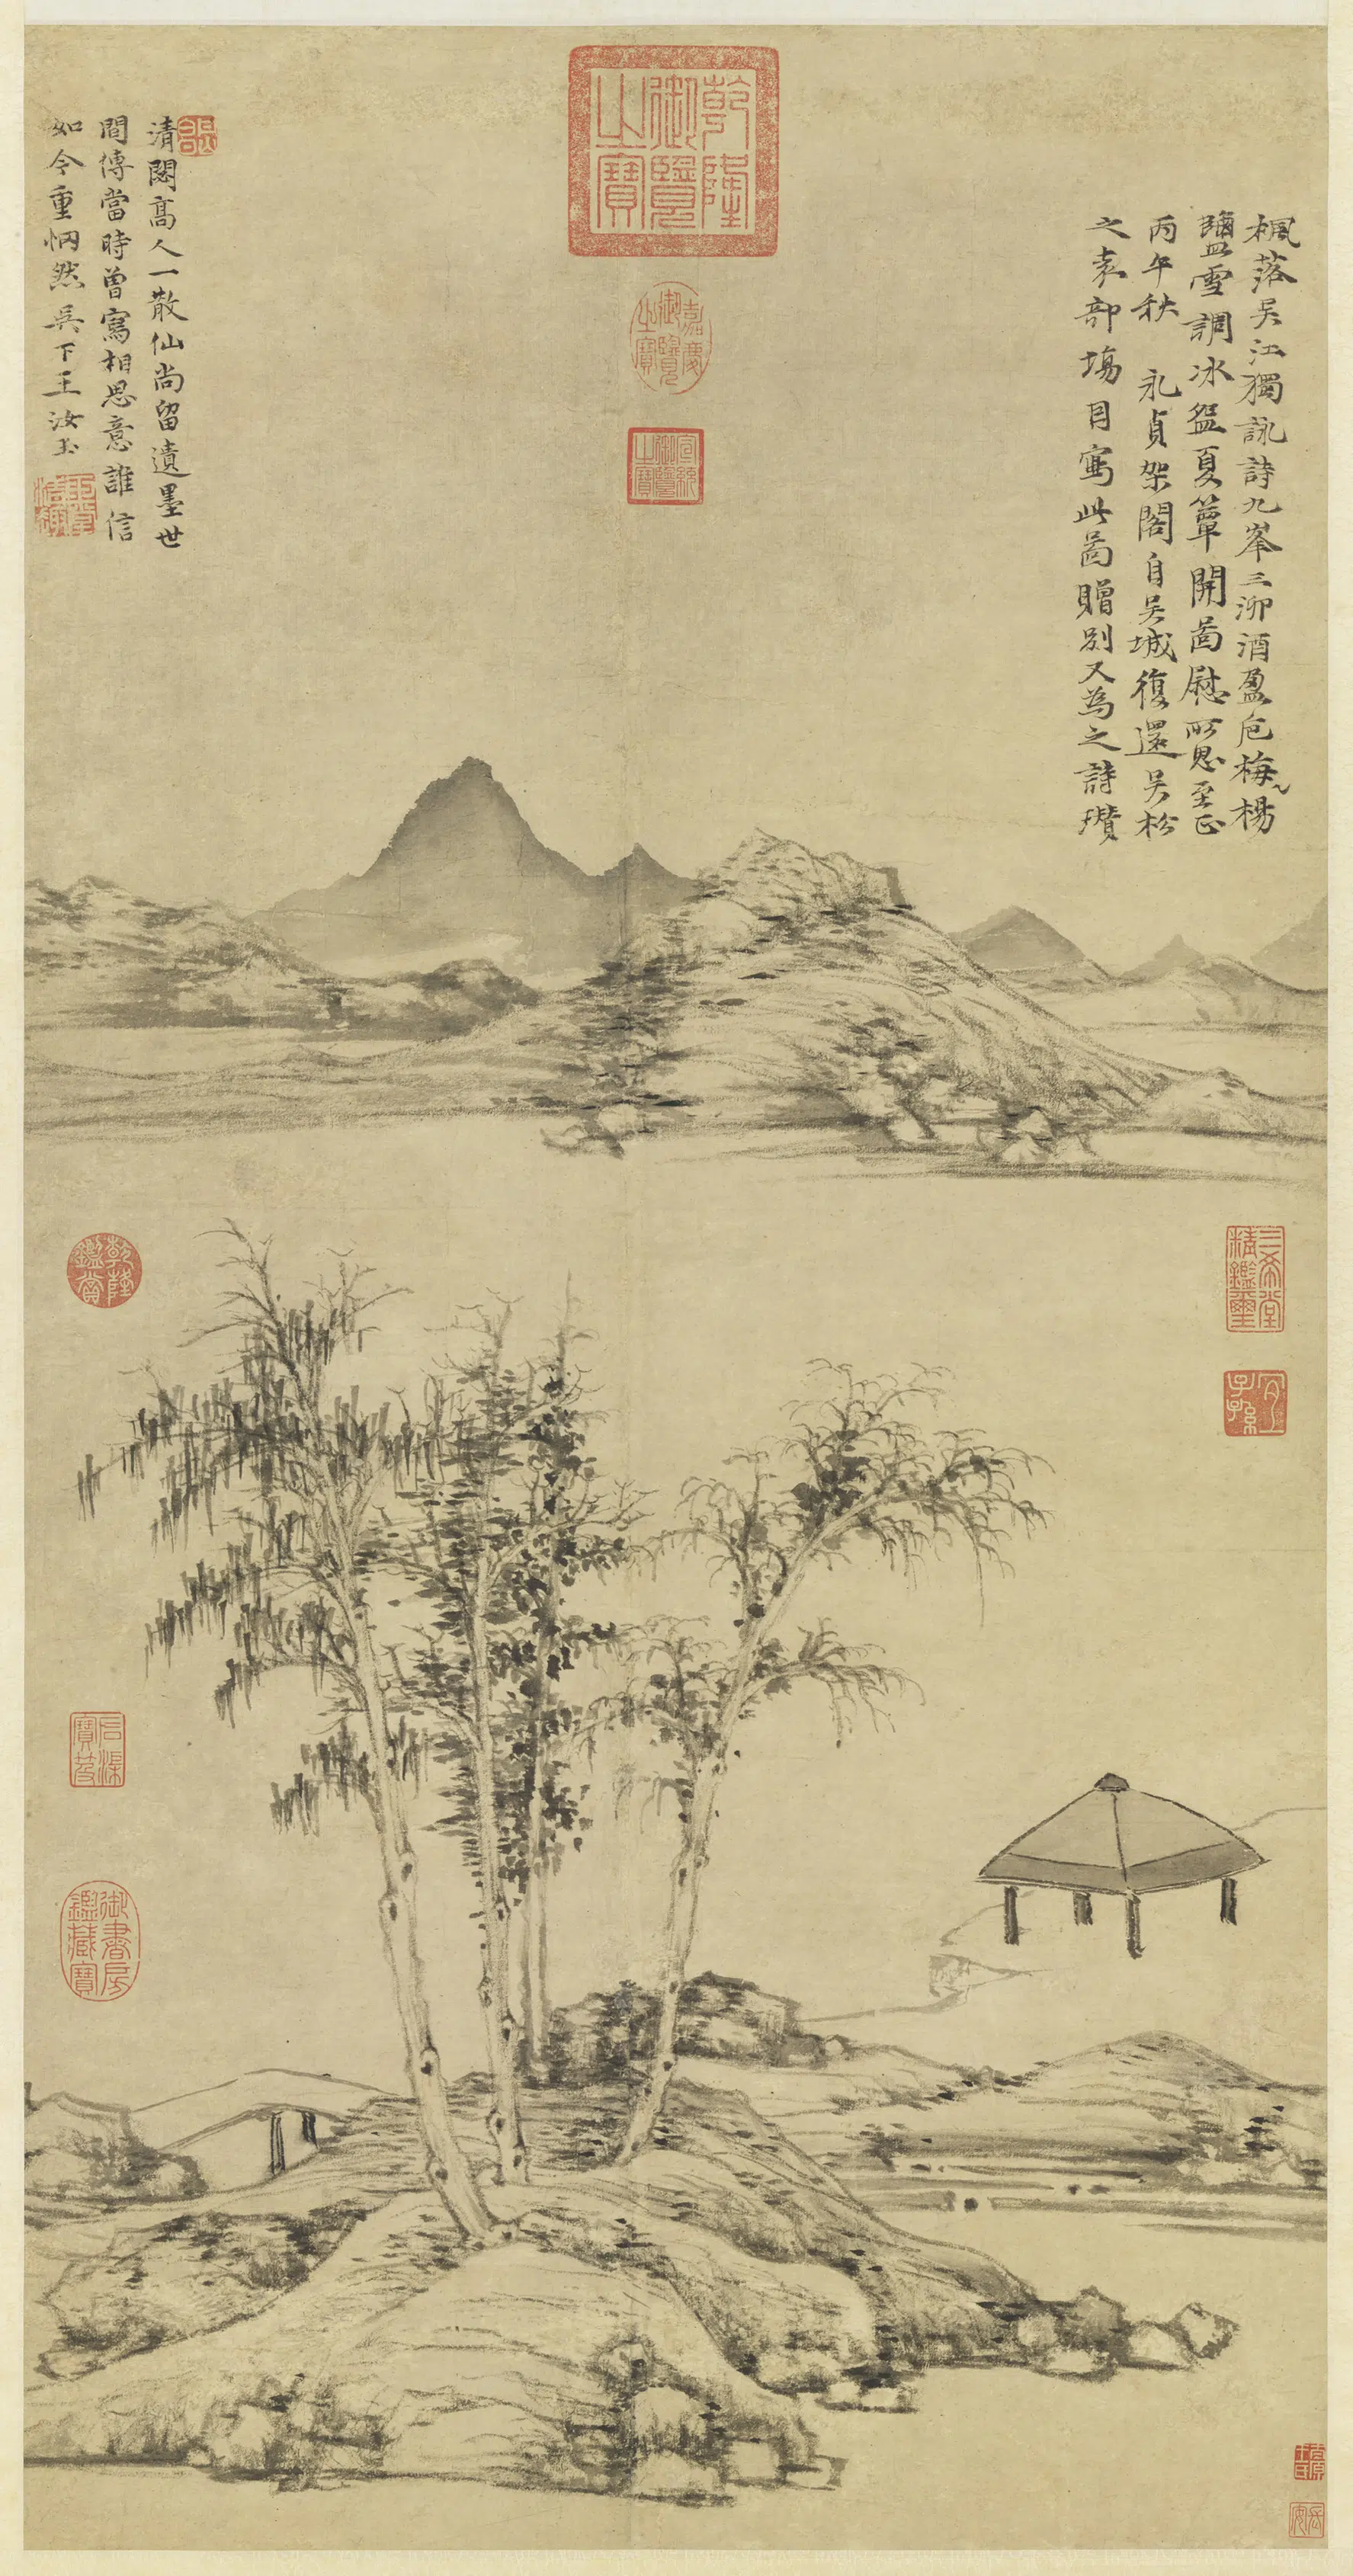 楓落吳江獨詠詩九峯三泖酒盈卮梅楊
鹽雪調冰盌夏簟開啚慰所思至正
丙午秋 永貞架閣自吳城復還吳松
之袁部場因寫此啚贈別又為之詩瓚
清閟高人一散仙尚留遺墨世
間傳當時曾寫相思意誰信
如今重惘然吳下王汝玉
乾隆御覽之寶
嘉慶御覽之寶
宣統御覽之寶
乾隆鑑賞
三希堂精鑑璽
宜子孫
御書房鑑藏寶